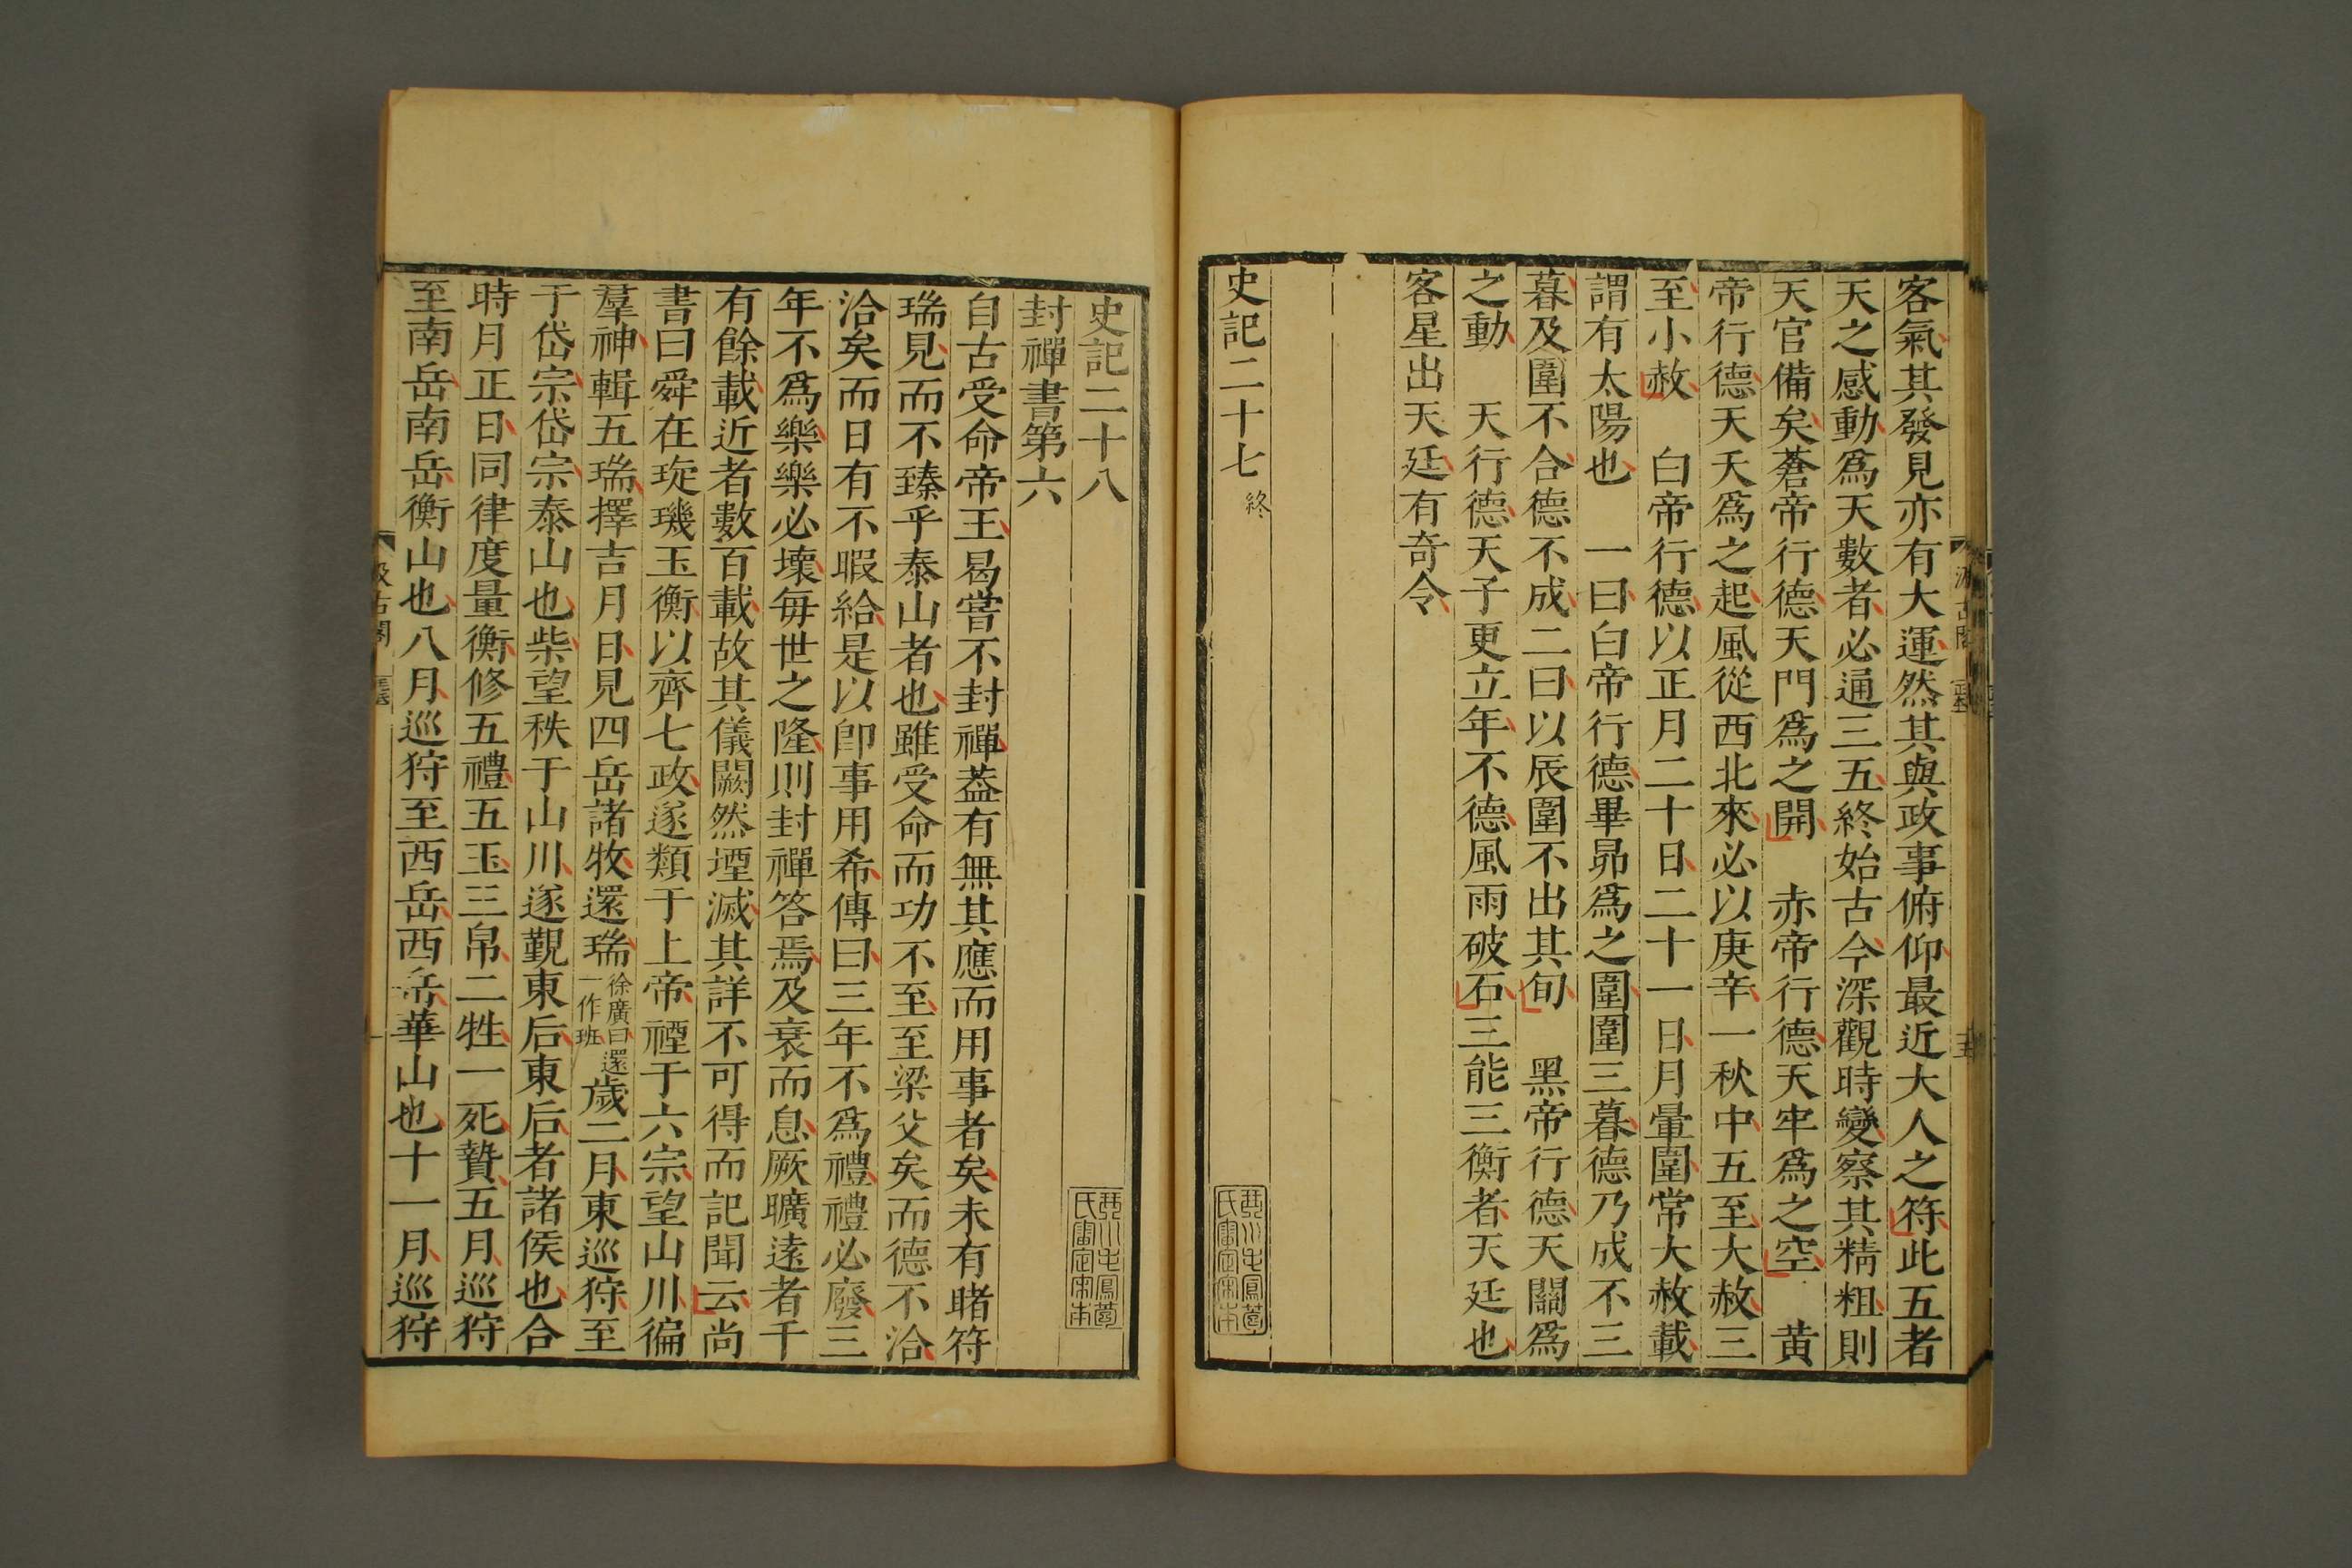 客氣其發見亦有大運然其與政事俯仰最近大人之符此五者
天之感動爲天數者必通三五終始古今深觀時變察其精粗則
天官備矣蒼帝行德天門爲之開　赤帝行德天牢爲之空　黃
帝行德天夭爲之起風從西北來必以庚辛一秋中五至大赦三
至小赦　白帝行德以正月二十日二十一日月暈圍常大赦載
謂有太陽也　一曰白帝行德畢昴爲之圍圍三暮德乃成不三
暮及圍不合德不成二曰以辰圍不出其旬　黑帝行德天關爲
之動　天行德天子更立年不德風雨破石三能三衡者天廷也
客星出天廷有奇令
史記二十七 終
史記二十八
封禪書第六
自古受命帝王曷嘗不封禪葢有無其應而用事者矣未有睹符
瑞見而不臻乎泰山者也雖受命而功不至至梁父矣而德不洽
洽矣而日有不暇給是以卽事用希傳曰三年不爲禮禮必廢三
年不爲樂樂必壞每世之隆則封禪答焉及衰而息厥曠遠者千
有餘載近者數百載故其儀闕然堙滅其詳不可得而記聞云尚
書曰舜在琁璣玉衡以齊七政遂類于上帝禋于六宗望山川徧
羣神輯五瑞擇吉月日見四岳諸牧還瑞 徐廣曰還一作班 歲二月東巡狩至
于岱宗岱宗泰山也柴望秩于山川遂覲東后東后者諸侯也合
時月正日同律度量衡修五禮五玉三帛二牲一死贄五月巡狩
至南岳南岳衡山也八月巡狩至西岳西岳華山也十一月巡狩
汲古閣